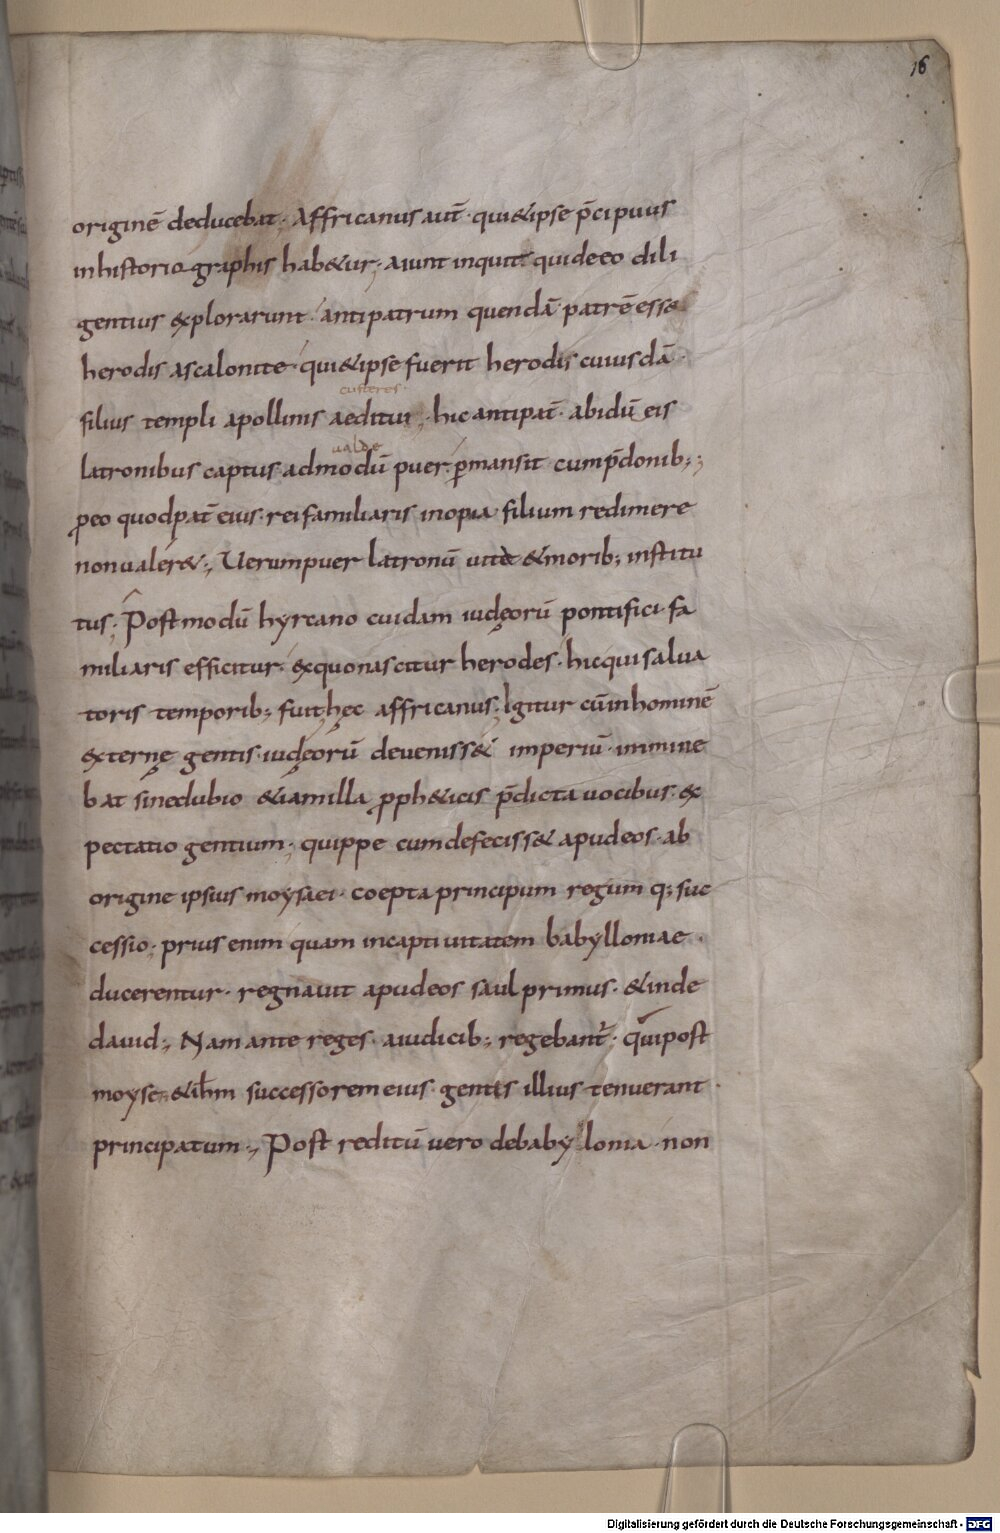 16
originē deducebat· Affricanus aut̄· qui&ipse p̄cipuus
inhistoriographis hab&ur; aiunt inquit quideeo dili
gentius explorarunt· antipatrum quendā patrē esse
herodis ascalonite· qui&ipse fuerit herodis cuiusdā·
custeres·
filius templi apollinis aeditui· hic antipat̄· abidū eis
ualde
latronibus captus admodū puer· ꝑmansit cump̄donib;;
ꝓeo quodpat̄ eius· reifamiliaris inopia· filium redimere
nonualer&;, Uerumpuer latronū uitae &morib; institu
tus; Postmodū hyrcano cuidam iudęorū pontifici· fa
miliaris efficitur· exquonascitur herodes· hicquisalua
toris temporib; fuit; hęc affricanus; Igitur cūinhominē
externę gentis· iudęorū deueniss& imperiū· immine
bat sinedubio &iamilla ꝓph&icis p̄dicta uocibus· ex
pectatio gentium· quippe cumdefeciss& apudeos· ab
origine ipsius moysaei· coepta principum regum q; suc
cessio· prius enim quam incaptiuitatem babylloniae·
ducerentur· regnauit apudeos saul primus· &inde
dauid;, Nam ante reges· aiudicib; regebant̄· quipost
moyse· &ih̄m successorem eius· gentis illius tenuerant·
principatum;, Post reditū uero debabyllonia· non
Digitalisierung gefördert durch die Deutsche Forschungsgemeinschaft - DFG